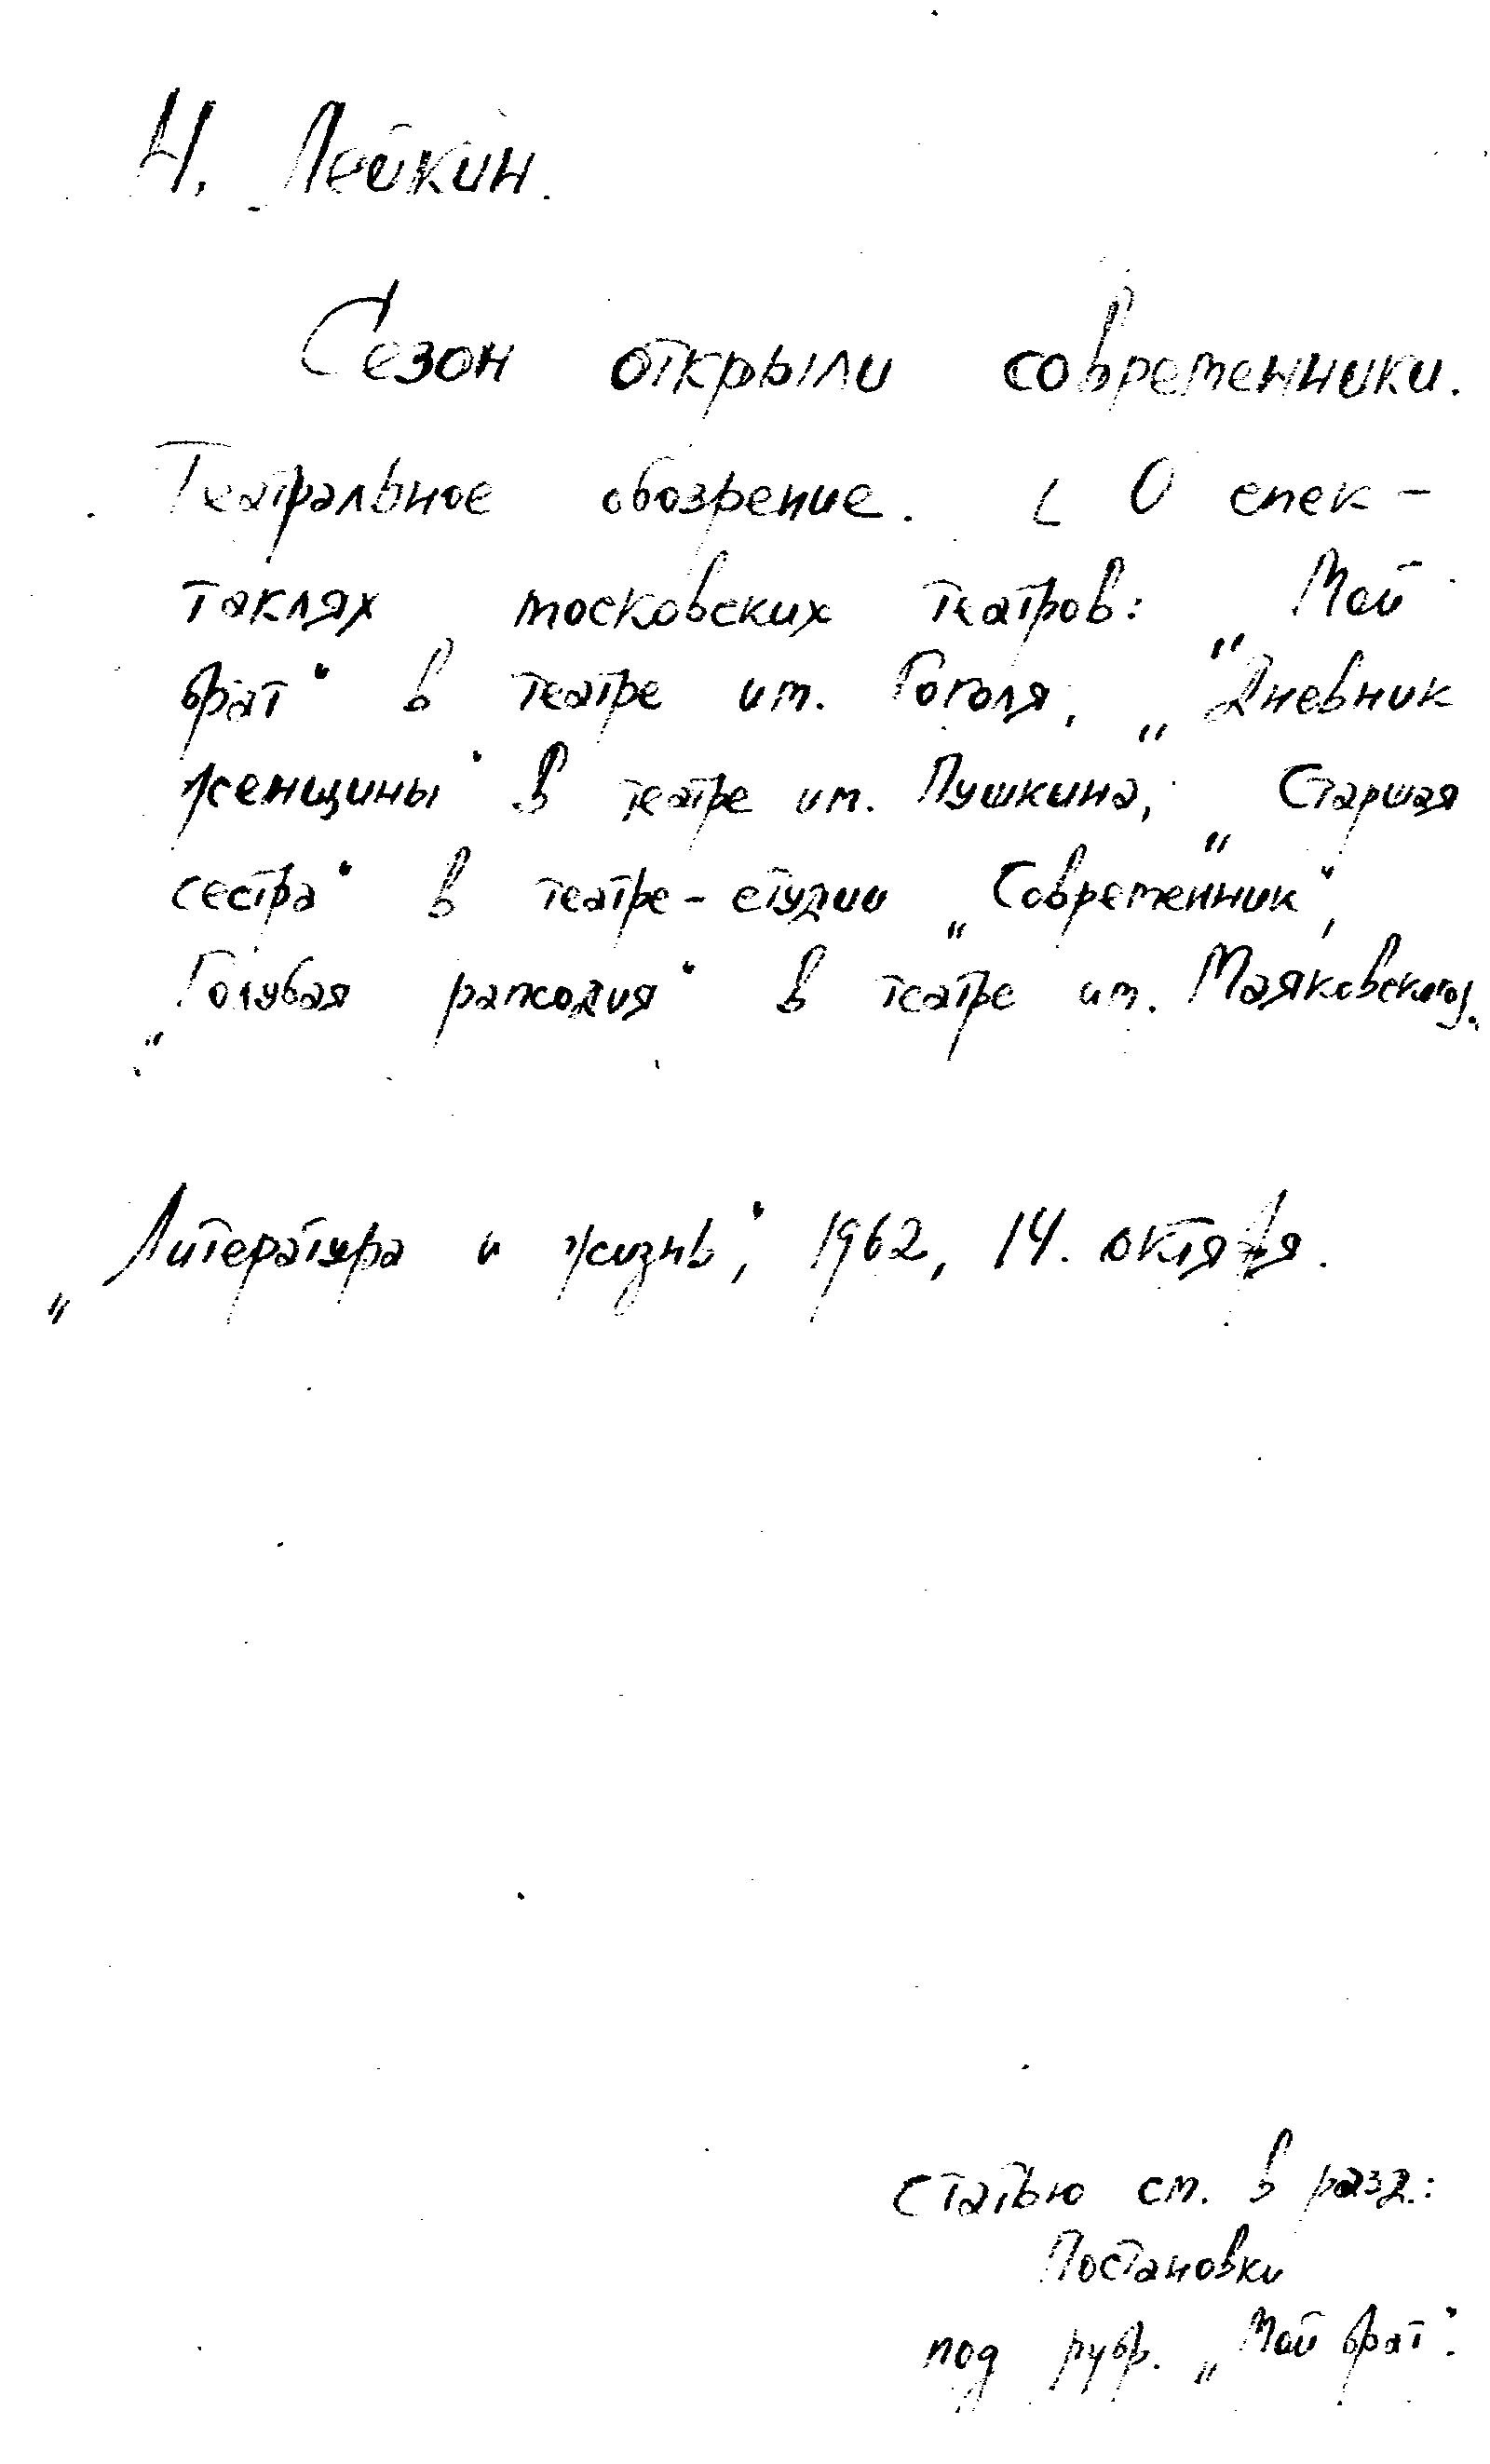 Н. Лейкин.
Сезон открыли современники.
Театральное обозрение. [ О спек-
таклях московских театров: „Мой
брат“ в театре им. Гоголя, „Дневник
женщины“ в театре им. Пушкина, „Старшая
сестра“ в театре-студии „Современник“,
„Голубая рапсодия“ в театре им. Маяковского].
„Литература и жизнь“, 1962, 14. октября.
Статью см. в разд.:
Постановки
под рубр. „Мой брат“.